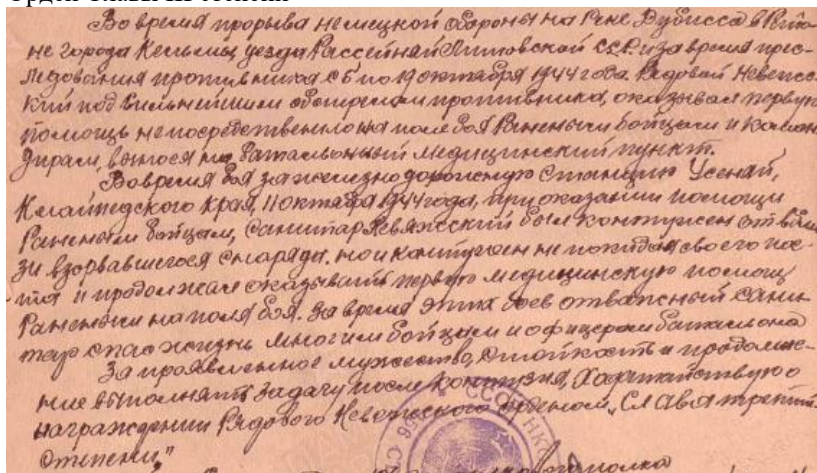 Орден Славы III степени
Во время прорыва немецкой обороны на реке Дубисса в Райо-
не города Кельмы, уезда Рассейняй Литовской ССР. и за время прес-
ледования противника с 6 по 19 октября 1944 года. Рядовой Невежс-
кий под сильнейшим обстрелом противника, оказывал первую
помощь непосредственно на поле боя Раненым бойцам и коман
дирам, вынося на батальонный медицинский пункт.
Вовремя боя за железнодорожную станцию Усенай,
Клайпедского края, 11 октября 1944 года, при оказании помощи
Раненым бойцам, санитар Невяжсский был контужен от
зи взорвавшегося снаряда. но и контужен не покидая своего пос-
та и продолжал оказывать первую медицинскую помощь
Раненым на поля боя. За время этих боев отважный сани-
тар спас жизнь многим бойцам и офицерам батальона
За проявленное мужество, стойкость и продолже-
ние выполнять задачу после контузия, Ходатайствую о
награждении Рядового Невежского орденом "СЛАВА третий
степени"
полка